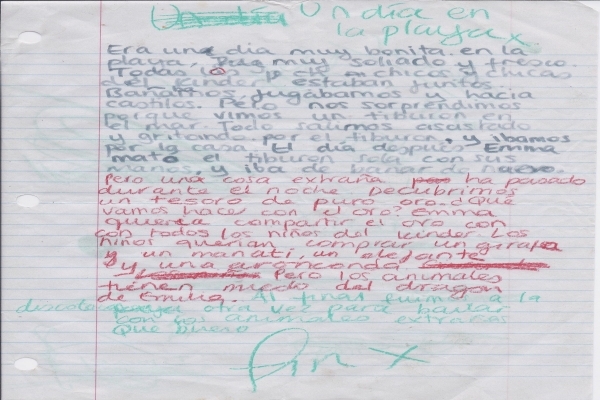 Un día en
la playa x
Era un día muy bonita. en la
playa, muy soliado y fresco.
Todas los chicos y chicas
del kinder estaban juntos.
Bonalinos jugábamos y hacia
castilos. Pero nos sorprendimos
porque vimos un tiburon en
el mar. Todo salimos asustado
y gritando por el tiburon, y ibamos
por la casa. El día después Emma
mató el tiburon sola con sus
manos y iba de bano de nuevo.
Pero una cosa extraña ha pasado
durante el noche pecubrimos
un tesoro de puro oro. ¿Que
vamos hacer con el oro? Emma
quieria compartir el oro con
con todos los niños del kinder. Los
niños querian comprar un girafa
y un manatí, un elefante
y una anaconda
Pero los animales
tienen miedo del dragon
de Emilia. Al final fuimos a la
discoteca otra vez para bailar
con los animales extraños
Que bueno
Fin x